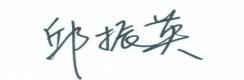 邱振英